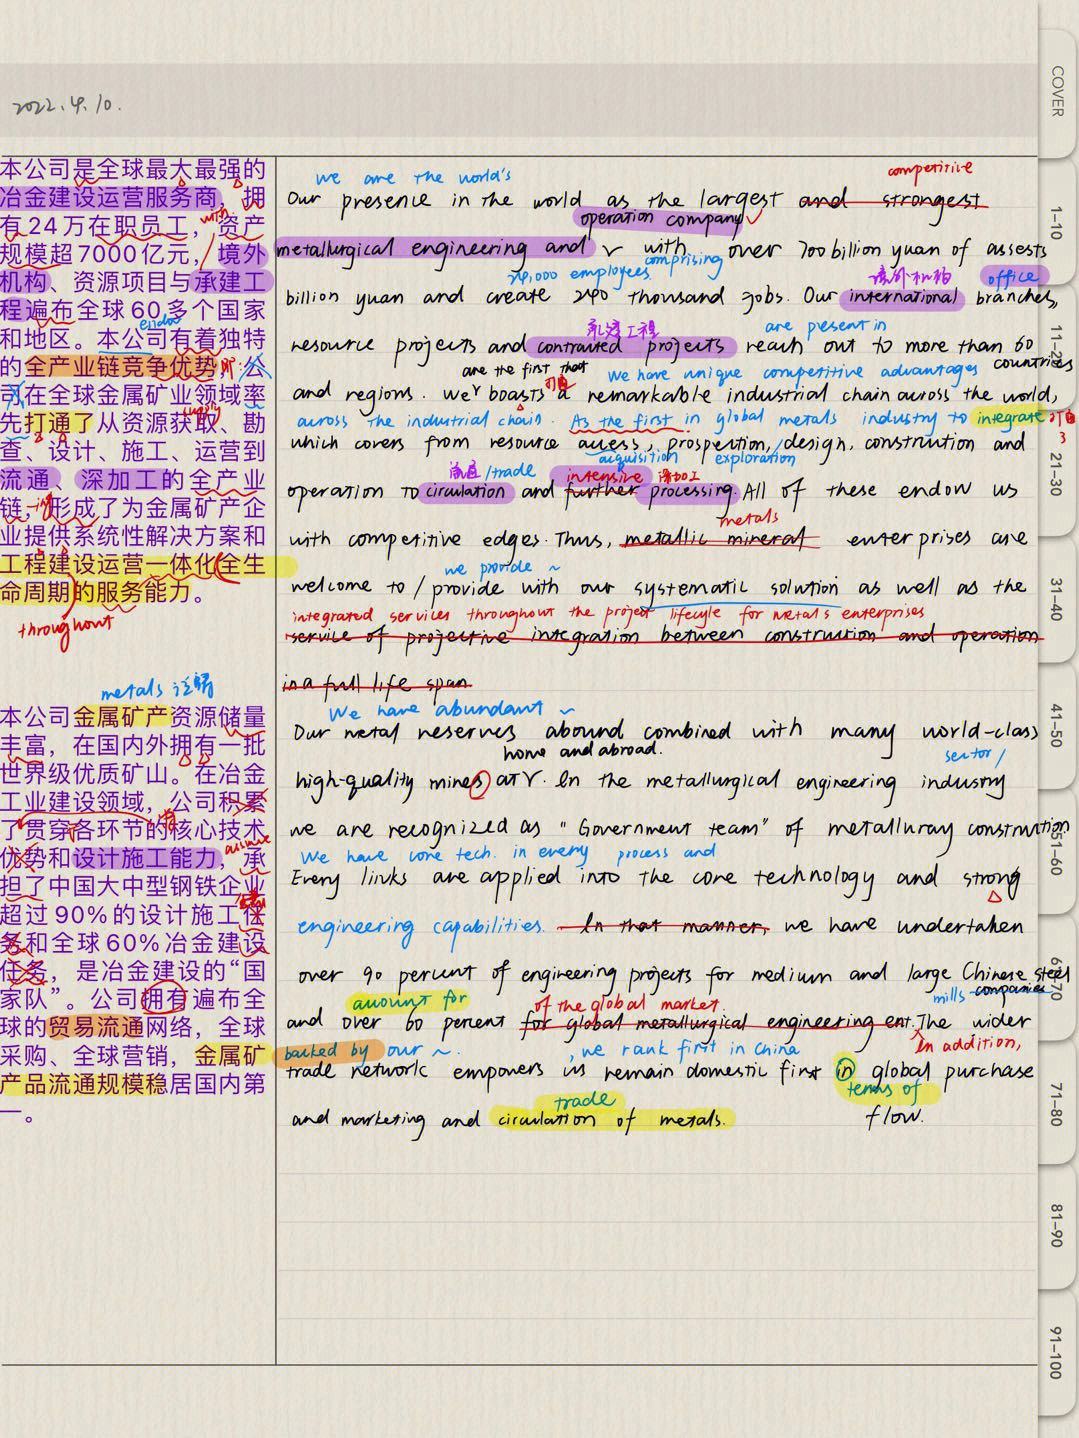 2022.4.10.
COVER
1-10
11-20
21-30
31-40
41-50
51-60
61-70
71-80
81-90
91-100
本公司是全球最大最强的
冶金建设运营服务商，拥
有24万在职员工，资产
规模超7000亿元，境外
机构、资源项目与承建工
程遍布全球60多个国家
和地区。本公司有着独特
的全产业链竞争优势，公
司在全球金属矿业领域率
先打通了从资源获取、勘
查、设计、施工、运营到
流通、深加工的全产业
链，形成了为金属矿产企
业提供系统性解决方案和
工程建设运营一体化全生
命周期的服务能力。
with
endow
supply
throughout
metals 注释
本公司金属矿产资源储量
丰富，在国内外拥有一批
世界级优质矿山。在冶金
工业建设领域，公司积累
了贯穿各环节的核心技术
优势和设计施工能力，承
担了中国大中型钢铁企业
超过90%的设计施工任
务和全球60%冶金建设
任务，是冶金建设的“国
家队”。公司拥有遍布全
球的贸易流通网络，全球
采购、全球营销，金属矿
产品流通规模稳居国内第
一。
we are the world's competitive
Our presence in the world as the largest and strongest
operation company
metallurgical engineering and with over 700 billion yuan of assests
240,000 employees comprising 境外机构 office
billion yuan and create 240 thousand jobs. Our international branches,
承建工程 are present in
resource projects and contraited projects reach out to more than 60
are the first that 打通 We have unique competitive advantages countries
and regions. we boasts a remarkable industrial chain across the world,
across the industrial chain. As the first in global metals industry to integrate 打通
which covers from resource access, prospention, design, construction and
acquisition exploration
流通/trade intensive 深加工
operation to circulation and further processing. All of these endow us
metals
with competitive edges. Thus, metallic mineral enterprises are
we provide ~
welcome to / provide with our systematic solution as well as the
integrated services throughout the project lifecyle for metals enterprises
service of projective integration between construction and operation
in a full life span
We have abundant ~
Our metal reserves abound combined with many world-class
home and abroad. sector/
high-quality mines at. In the metallurgical engineering industry
we are recognized as "Government team" of metalluray construction
We have core tech. in every process and
Every links are applied into the core technology and strong
engineering capabilities. In that manner, we have undertaken
over 90 percent of engineering projects for medium and large Chinese steel
amount for of the global market. mills companies
and over 60 percent for global metallurgical engineering ent. The wider
backed by our ~. , we rank first in China In addition,
trade network empowers us remain domestic first in global purchase
trade terms of
and marketing and circulation of metals. flow.